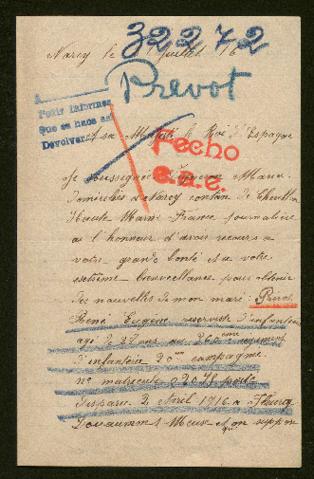 32272
Narcy le 1 juillet 16
Prevot
A
Pedir informes
Que se hace así
Devolver
sa Majesté le Roi d'Espagne
Fecho
Je soussignée Marie
domiciliée à Narcy canton de Chevillon
Haute Marne France journalière
ai l'honneur d'avoir recours à
votre grande bonté et à votre
extrême bienveillance pour obtenir
des nouvelles de mon mari:
René Eugène reserviste d'infanterie
agé de 28 ans au regiment
d'infanterie 20me compagnie
no matricule
disparu 2 Avril 1916 a
Douaumont Meuse et on suppose